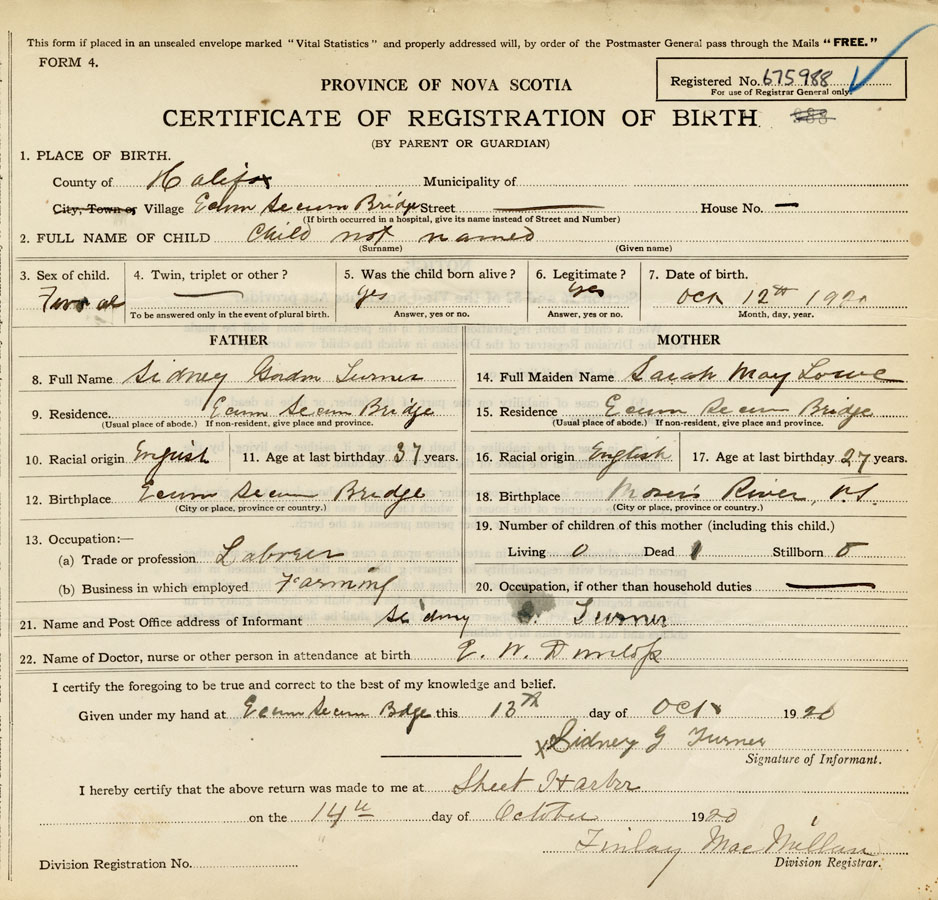 This form if placed in an unsealed envelope marked "Vital Statistics" and properly addressed will, by order of the Postmaster General pass through the Mails "FREE."
FORM 4.
Registered No. 675988
For use of Registrar General only.
PROVINCE OF NOVA SCOTIA
CERTIFICATE OF REGISTRATION OF BIRTH
988
(BY PARENT OR GUARDIAN)
1. PLACE OF BIRTH.
County of Halifax Municipality of
City, Town or Village Ecum Secum Bridge Street — House No. —
(If birth occurred in a hospital, give its name instead of Street and Number)
2. FULL NAME OF CHILD Child not named
(Surname) (Given name)
3. Sex of child. 4. Twin, triplet or other? 5. Was the child born alive? 6. Legitimate? 7. Date of birth.
— yes yes Oct 12th 1920
To be answered only in the event of plural birth. Answer, yes or no. Answer, yes or no. Month, day, year.
FATHER MOTHER
8. Full Name Sidney Gordon Turner 14. Full Maiden Name Sarah May Lowe
9. Residence Ecum Secum Bridge 15. Residence Ecum Secum Bridge
(Usual place of abode.) If non-resident, give place and province. (Usual place of abode.) If non-resident, give place and province.
10. Racial origin English 11. Age at last birthday 37 years. 16. Racial origin English 17. Age at last birthday 27 years.
12. Birthplace Ecum Secum Bridge 18. Birthplace Mosers River, N.S.
(City or place, province or country.) (City or place, province or country.)
13. Occupation:— 19. Number of children of this mother (including this child.)
(a) Trade or profession Laborer Living 0 Dead 1 Stillborn 0
(b) Business in which employed Farming 20. Occupation, if other than household duties —
21. Name and Post Office address of Informant Sidney G. Turner
22. Name of Doctor, nurse or other person in attendance at birth W. Dunlop
I certify the foregoing to be true and correct to the best of my knowledge and belief.
Given under my hand at Ecum Secum Bdge this 13th day of Oct 1920
x Sidney G Turner
Signature of Informant.
I hereby certify that the above return was made to me at Sheet Harbor
on the 14th day of October 1920
Finlay MacMillan
Division Registration No. Division Registrar.